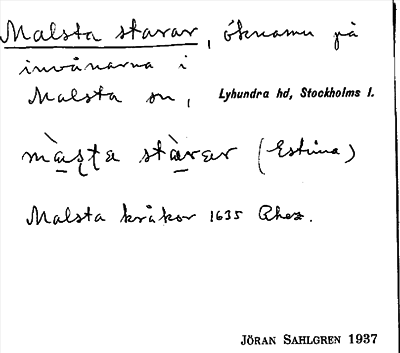 Malsta starar, öknamn på
invånarna i
Malsta sn, Lyhundra hd, Stockholms l.
màʂʈa stàrar (Estuna)
Malsta kråkor 1635 Rhez.
JÖRAN SAHLGREN 1937